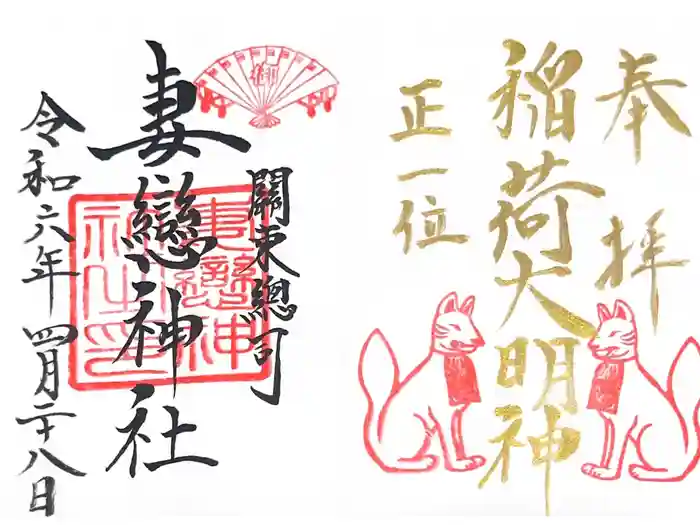 奉拝
稲荷大明神
正一位
關東總司
妻戀神社
令和六年四月二十八日
妻戀神
社之印